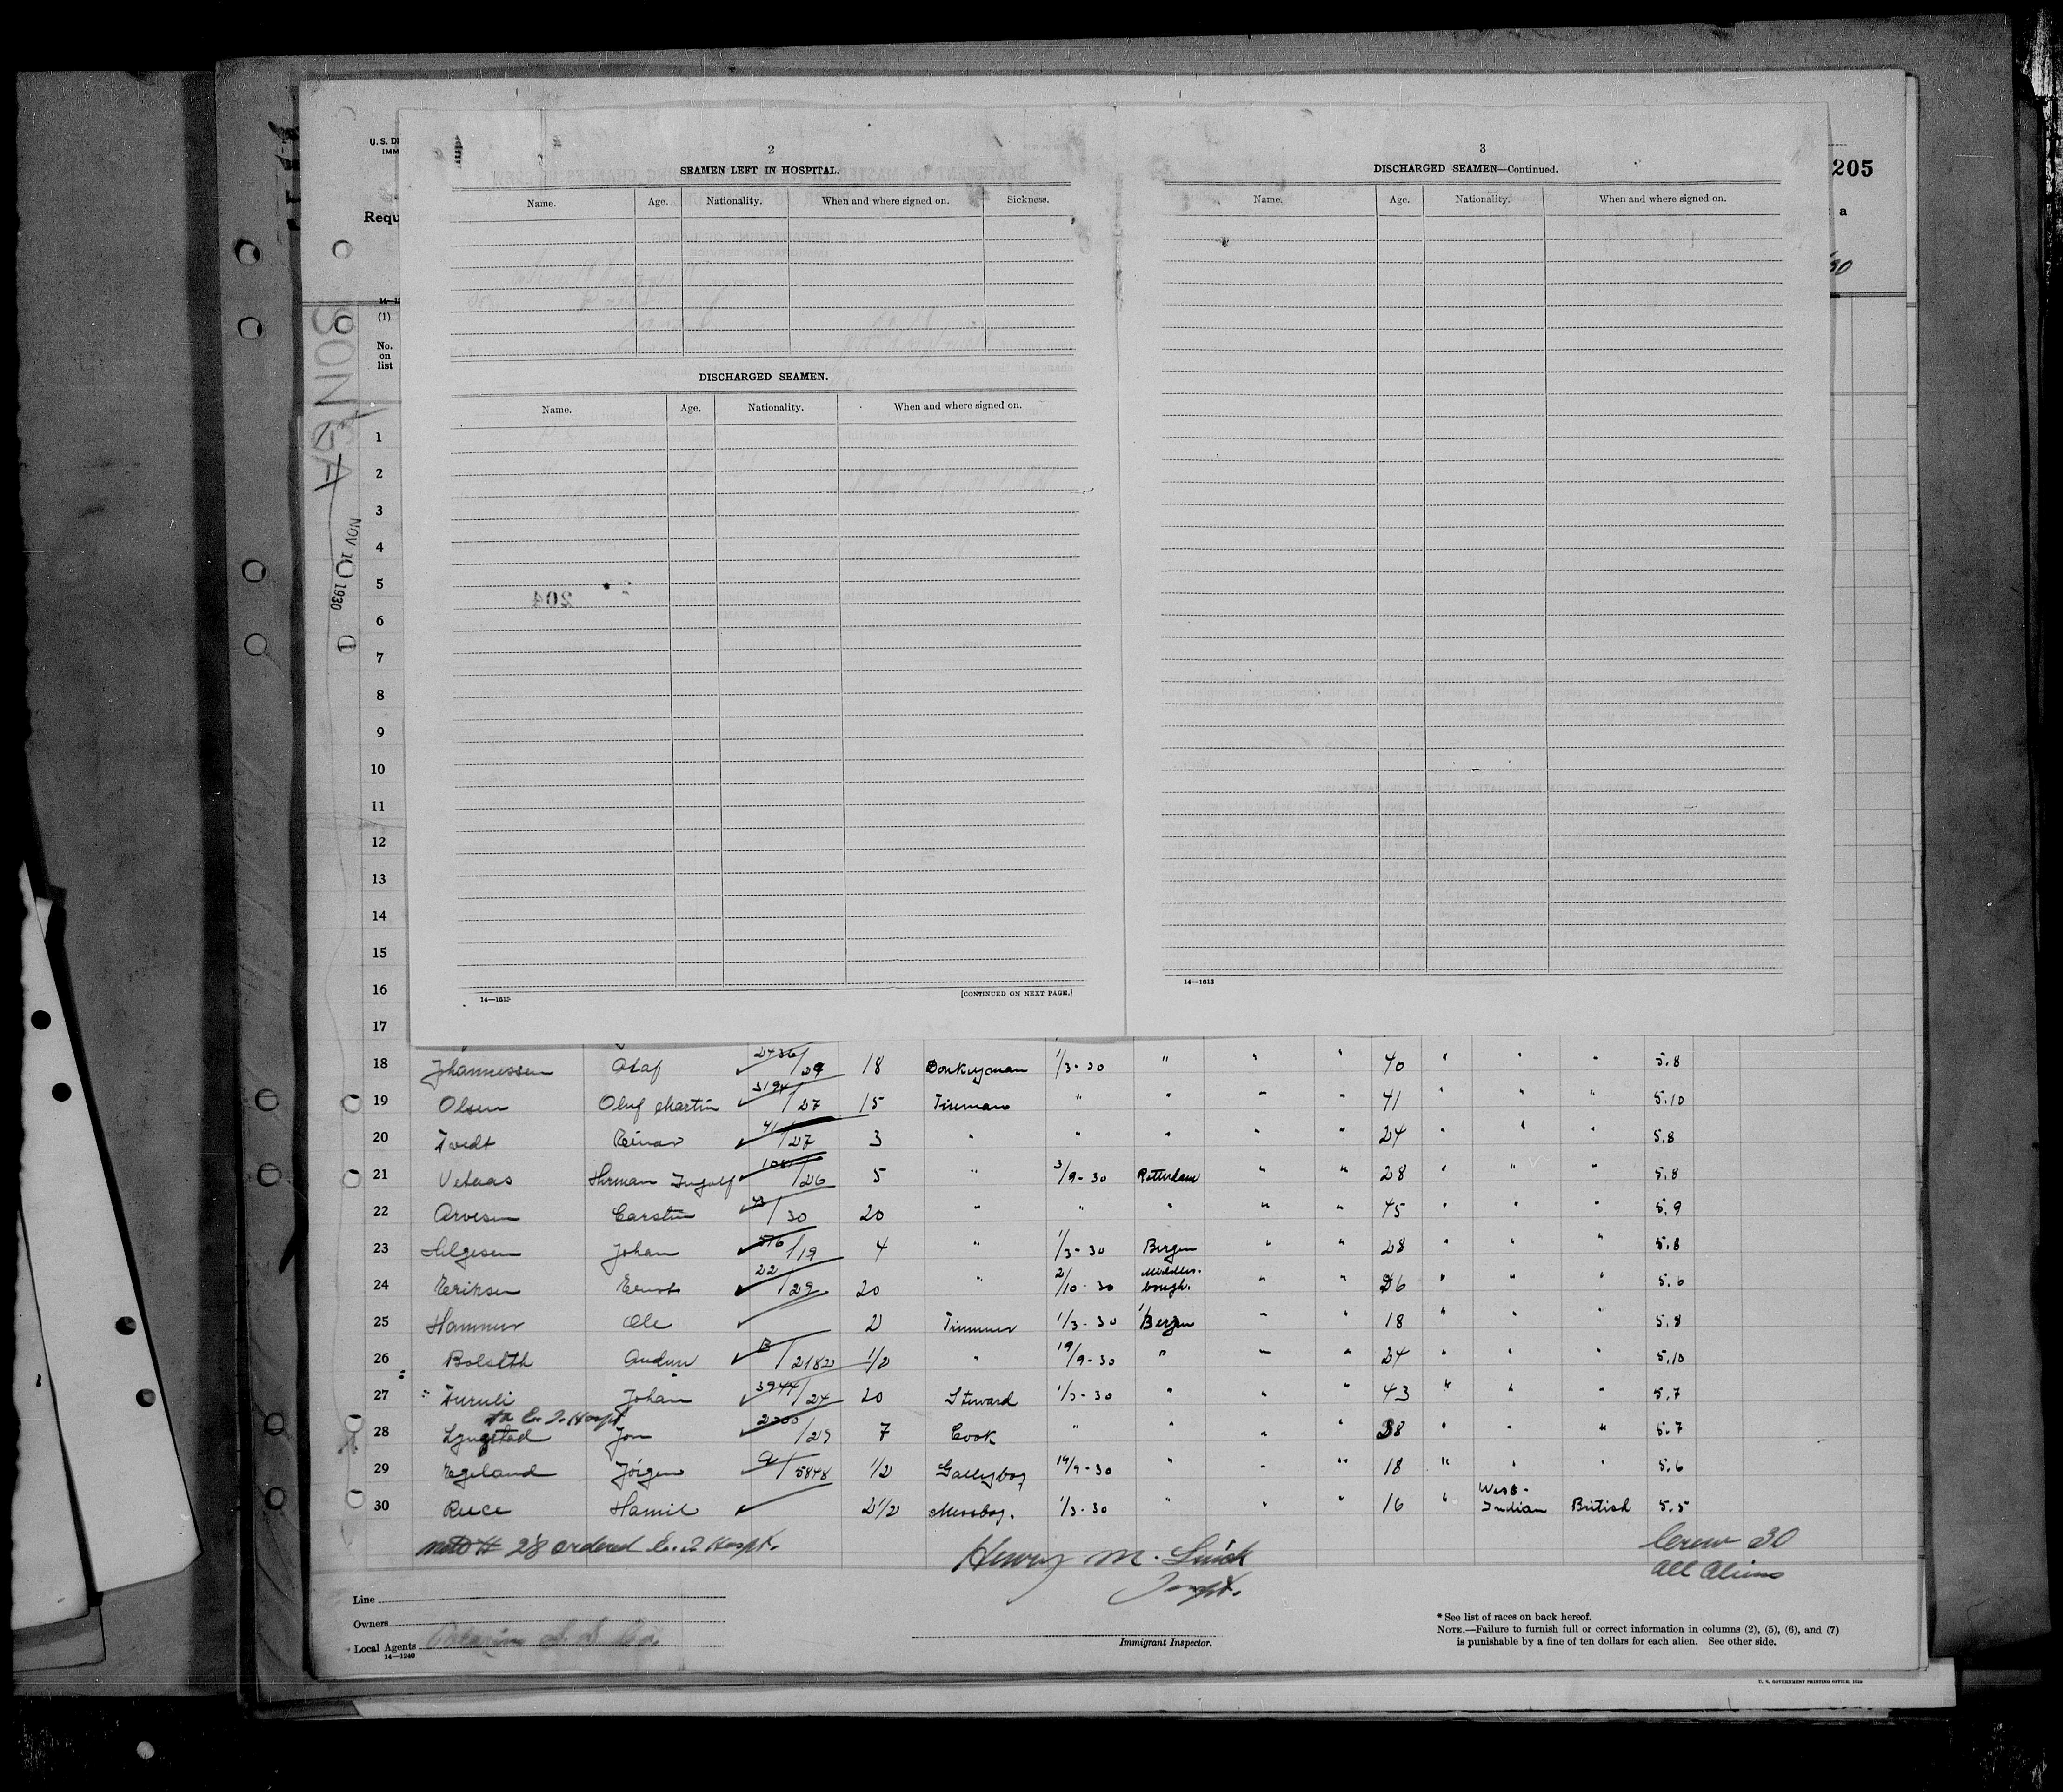 U. S. D
IMM
Requ
205
a
/30
SONGA
NOV 10 1930
2
SEAMEN LEFT IN HOSPITAL.
Name. Age. Nationality. When and where signed on. Sickness.
DISCHARGED SEAMEN.
Name. Age. Nationality. When and where signed on.
204
14—1613
[CONTINUED ON NEXT PAGE.]
3
DISCHARGED SEAMEN—Continued.
Name. Age. Nationality. When and where signed on.
14—1613
(1)
No. on list
1
2
3
4
5
6
7
8
9
10
11
12
13
14
15
16
17
18 Johannessen Olaf 2436/29 18 Donkeyman 1/3-30 " " " 40 " " " 5.8
19 Olsen Oluf Martin 3194/27 15 Fireman " " " " 41 " " " 5.10
20 Tvedt Einar 41/27 3 " " " " " 24 " " " 5.8
21 Veteraas Herman Ingolf /26 5 " 3/9-30 Rotterdam " " 28 " " " 5.8
22 Arvesen Carsten /30 20 " " " " " 45 " " " 5.9
23 Helgesen Johan 516/19 4 " 1/3-30 Bergen " " 28 " " " 5.8
24 Eriksen Ernst 22/29 20 " 2/10-30 Middlesbough. " " 26 " " " 5.6
25 Hammer Ole 2 Trimmer 1/3-30 Bergen " " 18 " " " 5.8
26 Bolseth Audun B/2182 1/2 " 19/9-30 " " " 24 " " " 5.10
27 Furuli Johan 3944/24 20 Steward 1/3-30 " " " 43 " " " 5.7
to E. I. Hospt
28 Lyngstad Jon /29 7 Cook " " " " 38 " " " 5.7
29 Egeland Jörgen /5848 1/2 Galleyboy 19/9-30 " " " 18 " " " 5.6
30 Reece Hamil 2 1/2 Messboy. 1/3-30 " " " 16 " West-Indian British 5.5
Note # 28 ordered E. I. Hospt.
Henry M.
Inspt.
Crew 30
all aliens
Line
Owners
Local Agents S. S. Co.
14—1240
Immigrant Inspector.
* See list of races on back hereof.
NOTE.—Failure to furnish full or correct information in columns (2), (5), (6), and (7)
is punishable by a fine of ten dollars for each alien. See other side.
U. S. GOVERNMENT PRINTING OFFICE: